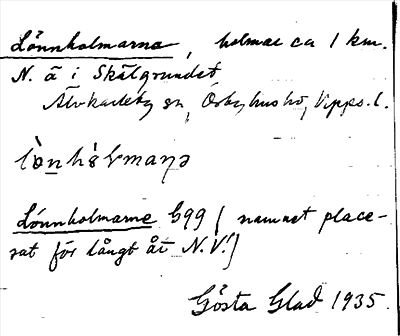 Lönnholmarna, holmar ca 1 km.
N. ä i Skålgrundet,
Älvkarleby sn, Örbyhus hd, Upps. l.
Lönnholmarne G99 (namnet place-
rat för långt åt N.V.!)
Gösta Glad 1935.